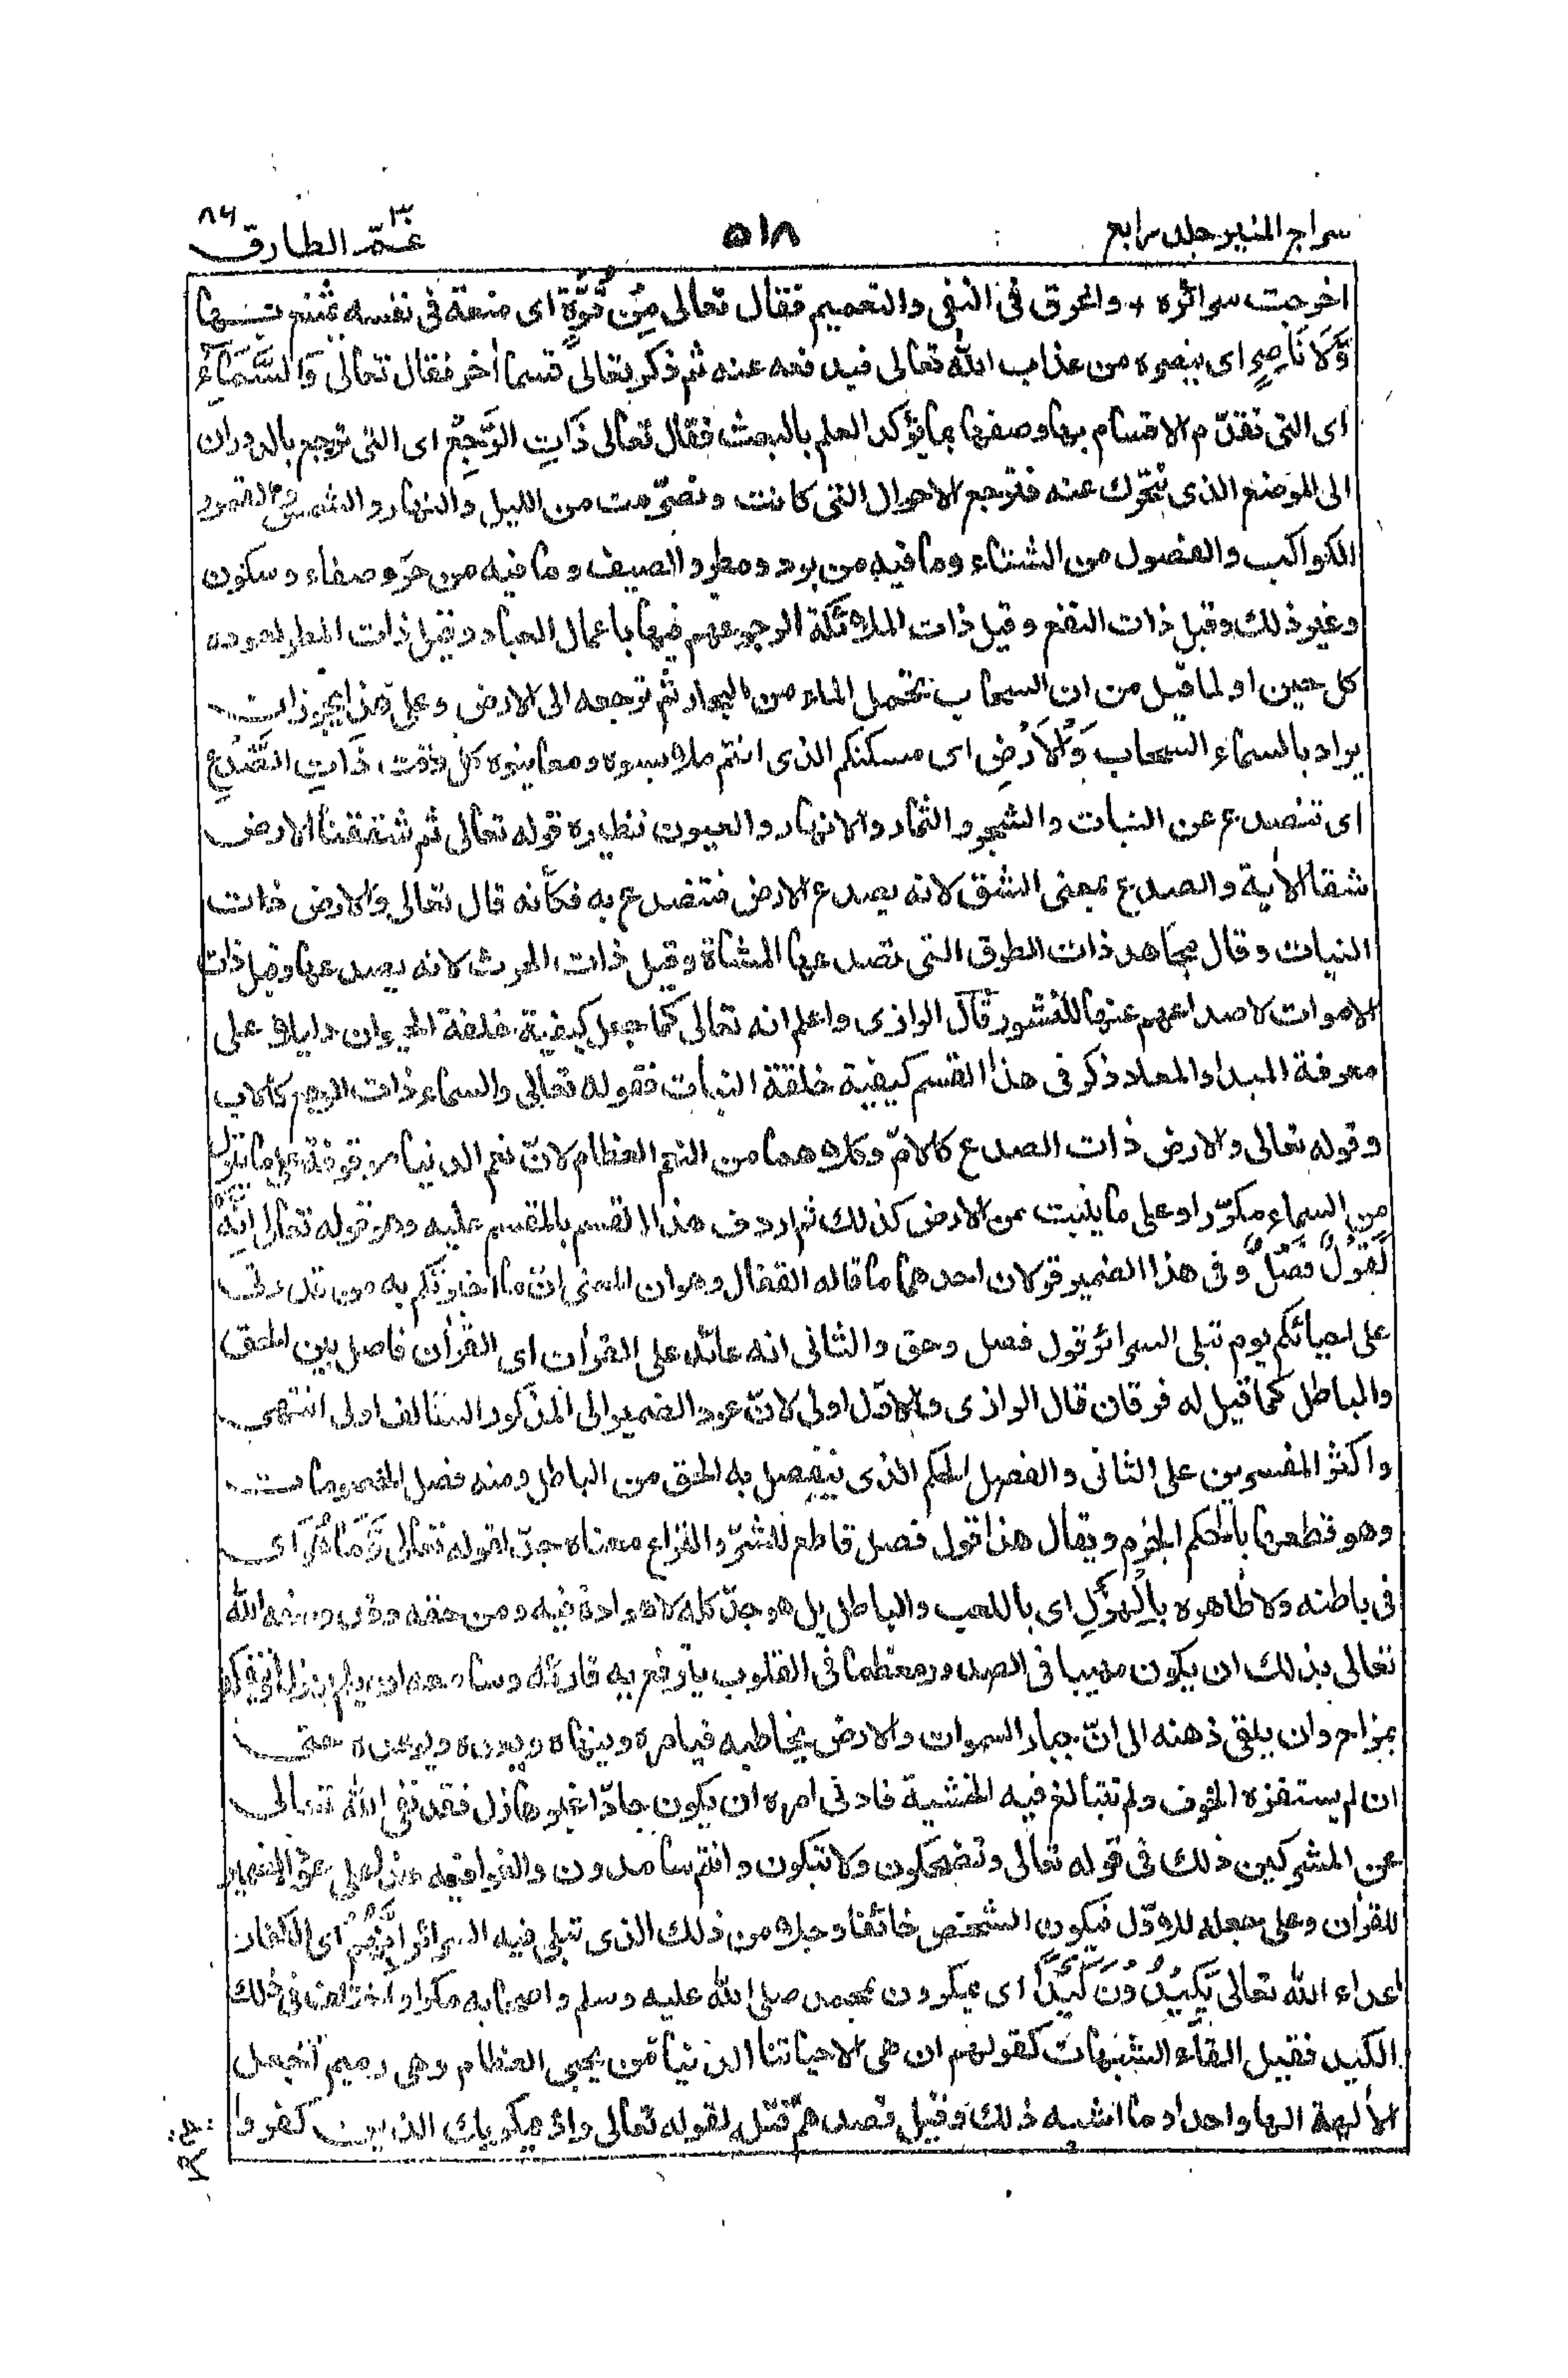 سراج المنير جلد رابع ٥١٨ عمّ ٣٠ الطارق ٨٦
اخرجت سرائره + واغرق فى النفى والتعميم فقال تعالى مِنْ قُوَّةٍ اى منعة فى نفسه يمتنع بها
وَّلَا نَاصِرٍ اى ينصره من عذاب الله تعالى فيدفعه عنه ثم ذكر تعالى قسما اٰخر فقال تعالى وَالسَّمَآءِ
اى التى تقدّم الاقسام بها وصفها بما يؤكد العلم بالبعث فقال تعالى ذَاتِ الرَّجْعِ اى التى ترجع بالدوران
الى الموضع الذى تتحرّك عنه فترجع الاحوال التى كانت وتصرّمت من الليل والنهار والشمس والقمر و
الكواكب والفصول من الشتاء وما فيه من برد ومطر والصيف وما فيه من حرّ وصفاء وسكون
وغير ذلك وقيل ذات النفع وقيل ذات الملائكة لرجوعهم فيها باعمال العباد وقيل ذات المطر لعوده
كل حين او لما قيل من ان السحاب يحتمل الماء من البحار ثم ترجعه الى الارض وعلى هذا يجوز ان
يراد بالسماء السحاب وَالْاَرْضِ اى مسكنكم الذى انتم ملابسوه ومعاينوه كل وقت ذَاتِ الصَّدْعِ
اى تتصدع عن النبات والشجر والثمار والانهار والعيون نظيره قوله تعالى ثم شققنا الارض
شقا الاٰية والصدع بمعنى الشق لانه يصدع الارض فتصدع به فكأنه قال تعالى والارض ذات
النبات وقال مجاهد ذات الطرق التى تصدعها المشاة وقيل ذات الحرث لانه يصدعها وقيل ذات
الاموات لانصداعهم عنها للنشور قال الرازى واعلم انه تعالى كما جعل كيفية خلقة الحيوان دليلا على
معرفة المبدا والمعاد ذكر فى هذا القسم كيفية خلقة النبات فقوله تعالى والسماء ذات الرجع كالاب
وقوله تعالى والارض ذات الصدع كالامّ وكلاهما من النعم العظام لانّ نعم الدنيا موقوفة على ما ينزل
من السماء مكرّرا وعلى ما ينبت من الارض كذلك ثم اردف هذا القسم بالمقسم عليه وهو قوله تعالى اِنَّهٗ
لَقَوْلٌ فَصْلٌ وفى هذا الضمير قولان احدهما ما قاله القفال وهو ان المعنى انّ ما اخبرتكم به من قدرتى
على احيائكم يوم تبلى السرائر قول فصل وحق والثانى انه عائد على القرأن اى القرأن فاصل بين الحق
والباطل كما قيل له فرقان قال الرازى والاوّل اولى لانّ عود الضمير الى المذكور السالف اولى انتهى
واكثر المفسرين على الثانى والفصل الحكم الذى ينفصل به الحق من الباطل ومنه فصل الخصومات
وهو قطعها بالحكم الجزم ويقال هذا قول فصل قاطع للشرّ والنزاع معناه جدّ لقوله تعالى وَّمَا هُوَ اى
فى باطنه ولا ظاهره بِالْهَزْلِ اى باللعب والباطل بل هو جدّ كله لا هوادة فيه ومن حقه وقد وصفه الله
تعالى بذلك ان يكون مهيبا فى الصدور معظما فى القلوب يترفع به قارئه وسامعه ان يلم بهزل او يتفكه
بمزاح وان يلقى ذهنه الى انّ جبار السموات والارض يخاطبه فيامره وينهاه ويعده ويوعده حتى
ان لم يستفزه الخوف ولم تتبالغ فيه الخشية فادنى امره ان يكون جادّا غير هازل فقد نفى الله تعالى
عن المشركين ذلك فى قوله تعالى وتضحكون ولا تبكون وانتم سامدون والغوا فيه هذا على عود الضمير
للقرأن وعلى جعله للاوّل فيكون الشخص خائفا وجلا من ذلك الذى تبلى فيه السرائر اِنَّهُمْ اى الكفار
اعداء الله تعالى يَكِيْدُوْنَ كَيْدًا اى يمكرون بمحمد صلى الله عليه وسلم واصحابه مكرا واختلف فى ذلك
الكيد فقيل القاء الشبهات كقولهم ان هى الا حياتنا الدنيا من يحيى العظام وهى رميم اتجعل
الاٰلهة الها واحدا وما اشبه ذلك وقيل قصدهم قتله لقوله تعالى واذ يمكر بك الذين كفروا